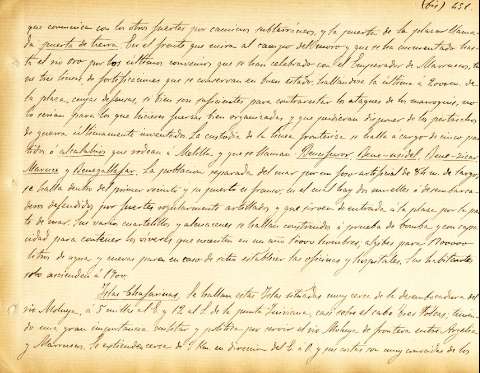 (bis) 251.
que comunica con los otros fuertes por caminos subterráneos, y la puerta de la plaza llama-
da puerta de tierra. En el frente que mira al campo del moro y que se ha aumentado has-
ta el no oro por los ultimos convenios que se han celebrado con el Emperador de Marruecos, tie-
ne tres lineas de fortificaciones que se conservan en buen estado, hallandose la última á 200 m. de
la plaza, cuyas defensas, si bien son suficientes para contrarestar los ataques de los marroquies, no
lo serian para los que hicieran fuerzas bien organizadas y que pudieran disponer de los pertrechos
de guerra ultimamente inventados. La custodia de la linea fronteriza se halla á cargo de cinco
ó alcabilas que rodean á Melilla, y que se llaman
Mazuza y La poblacion separada del mar por un foso artificial de de largo,
se halla dentro del primer recinto y su puerto es franco, en el cual hay dos muelles ó desembarca-
deros defendidos por fuertes regularmente artillados y que sirven de entrada á la plaza por la par-
te de mar. Sus varios cuartelillos y almacenes se hallan construidos á prueba de bomba, y con capa-
cidad para contener los viveres que necesitan en un año hombres, algibes para
litros de agua, y cuevas para en caso de sitio establecer las oficinas y hospitales. Sus habitantes
solo ascienden á
Islas Chafarinas. Se hallan estas Islas situadas muy cerca de la desembocadura del
rio Muluya, á 5 millas al y 12 al de la punta casi sobre el cabo
do una gran importancia militar y politica por servir el rio Muluya de frontera entre Argelia
y Marruecos. Se extienden cerca de 2 Km en direccion del E. á O. y sus costas son muy de los